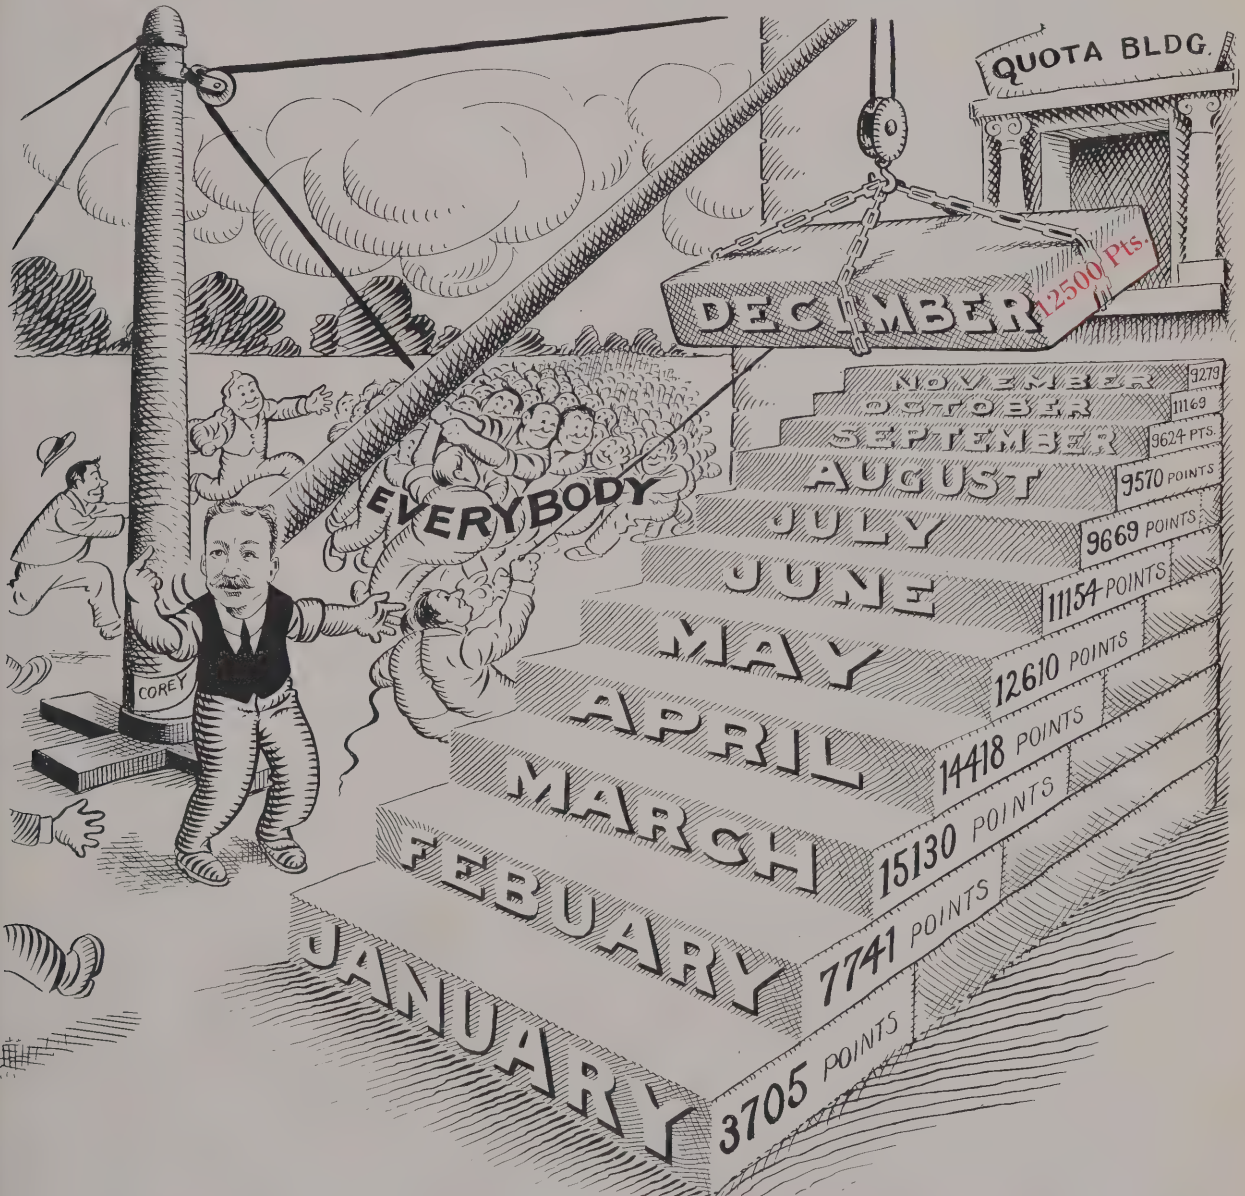 QUOTA BLDG.
DECEMBER 12500 Pts.
NOVEMBER 9279
OCTOBER 11169
SEPTEMBER 9624 PTS.
AUGUST 9570 POINTS
EVERYBODY
JULY 9669 POINTS
JUNE 11154 POINTS
MAY 12610 POINTS
COREY
APRIL 14418 POINTS
MARCH 15130 POINTS
FEBUARY 7741 POINTS
JANUARY 3705 POINTS